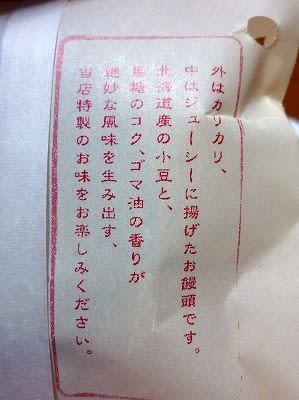 外はカリカリ、
中はジューシーに揚げたお饅頭です。
北海道産の小豆と、
黒糖のコク、ゴマ油の香りが
絶妙な風味を生み出す、
当店特製のお味をお楽しみください。